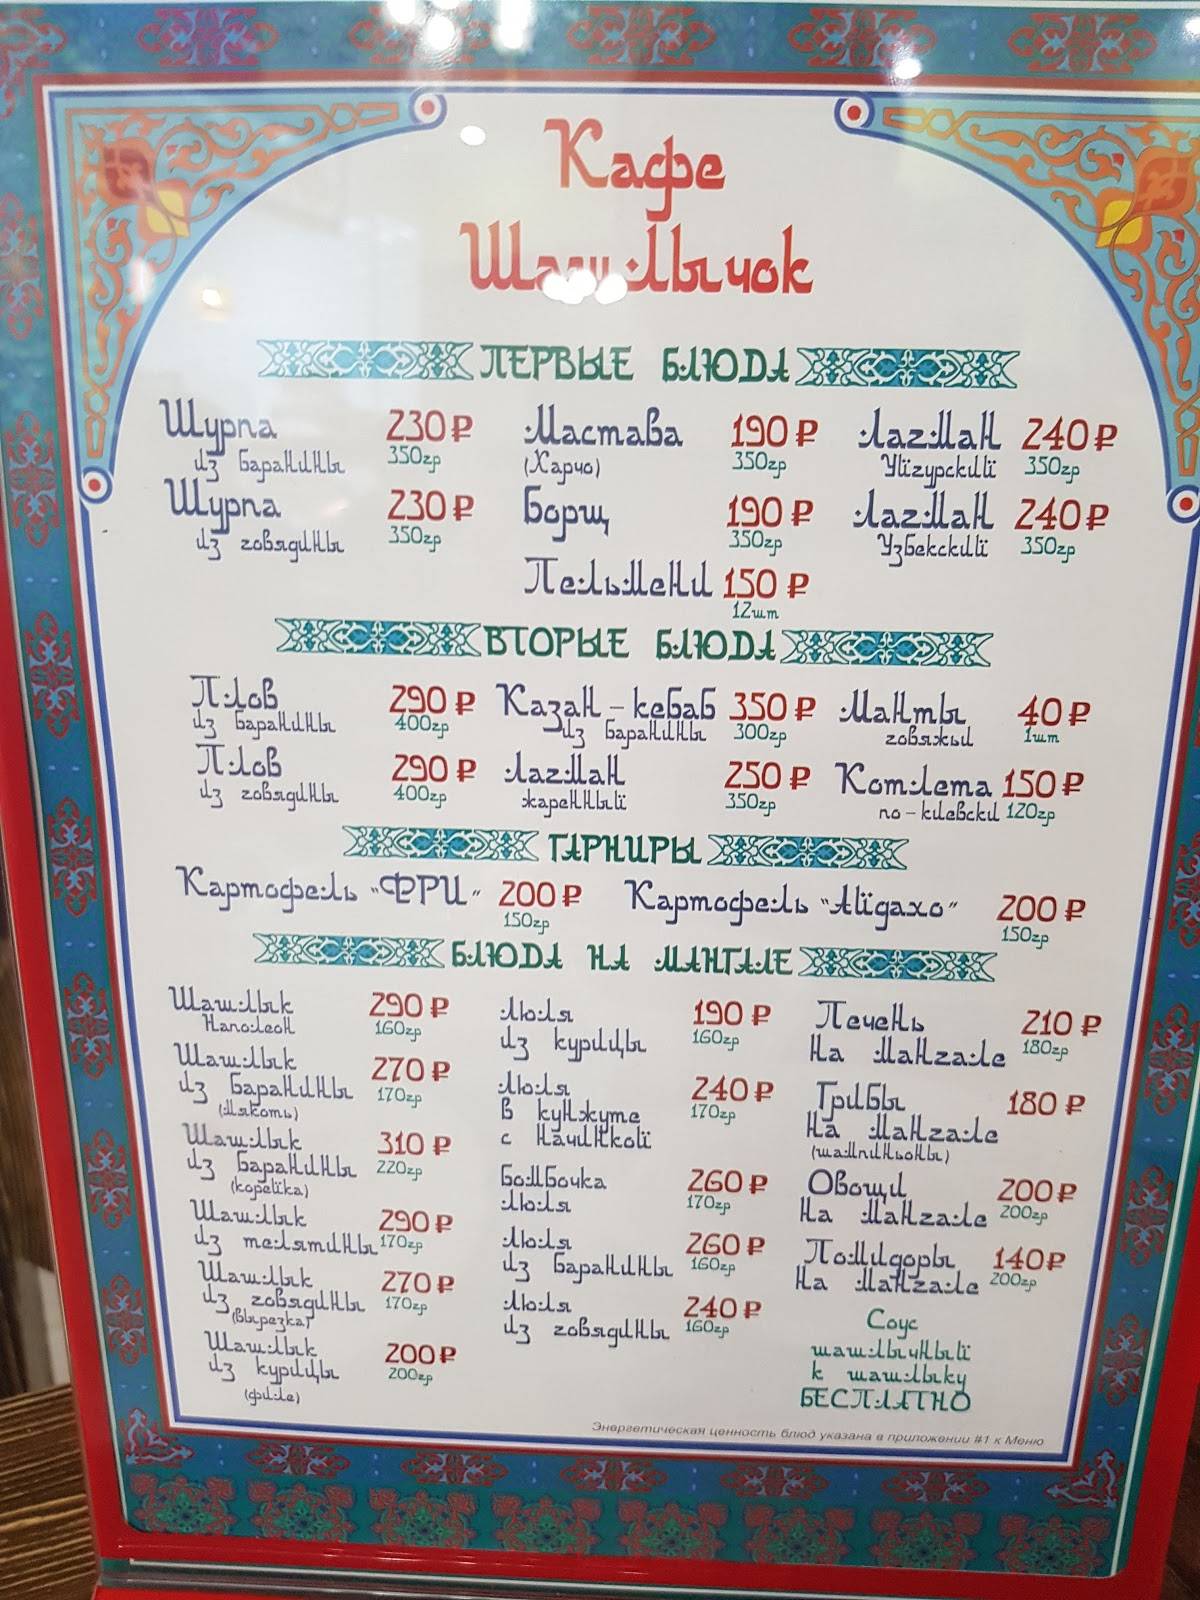 Кафе
Шашлычок
ПЕРВЫЕ БЛЮДА
Шурпа 230 ₽
из баранины 350гр
Шурпа 230 ₽
из говядины 350гр
Мастава 190 ₽
(Харчо) 350гр
Борщ 190 ₽
350гр
Пельмени 150 ₽
12шт
Лагман 240 ₽
Уйгурский 350гр
Лагман 240 ₽
Узбекский 350гр
ВТОРЫЕ БЛЮДА
Плов 290 ₽
из баранины 400гр
Плов 290 ₽
из говядины 400гр
Казан-кебаб 350 ₽
из баранины 300гр
Лагман 250 ₽
жаренный 350гр
Манты 40 ₽
говяжьи 1шт
Котлета 150 ₽
по-киевски 120гр
ГАРНИРЫ
Картофель "ФРИ" 200 ₽
150гр
Картофель "Айдахо" 200 ₽
150гр
БЛЮДА НА МАНГАЛЕ
Шашлык 290 ₽
Наполеон 160гр
Шашлык 270 ₽
из баранины 170гр
(мякоть)
Шашлык 310 ₽
из баранины 220гр
(корейка)
Шашлык 290 ₽
из телятины 170гр
Шашлык 270 ₽
из говядины 170гр
(вырезка)
Шашлык 200 ₽
из курицы 200гр
(филе)
Люля 190 ₽
из курицы 160гр
Люля 240 ₽
в кунжуте 170гр
с начинкой
Бомбочка 260 ₽
люля 170гр
Люля 260 ₽
из баранины 160гр
Люля 240 ₽
из говядины 160гр
Печень 210 ₽
на мангале 180гр
Грибы 180 ₽
на мангале
(шампиньоны)
Овощи 200 ₽
на мангале 200гр
Помидоры 140 ₽
на мангале 200гр
Соус
шашлычный
к шашлыку
БЕСПЛАТНО
Энергетическая ценность блюд указана в приложении #1 к Меню